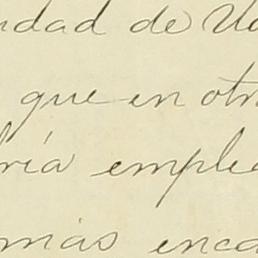 dad de
que en
ría emplea
más enca